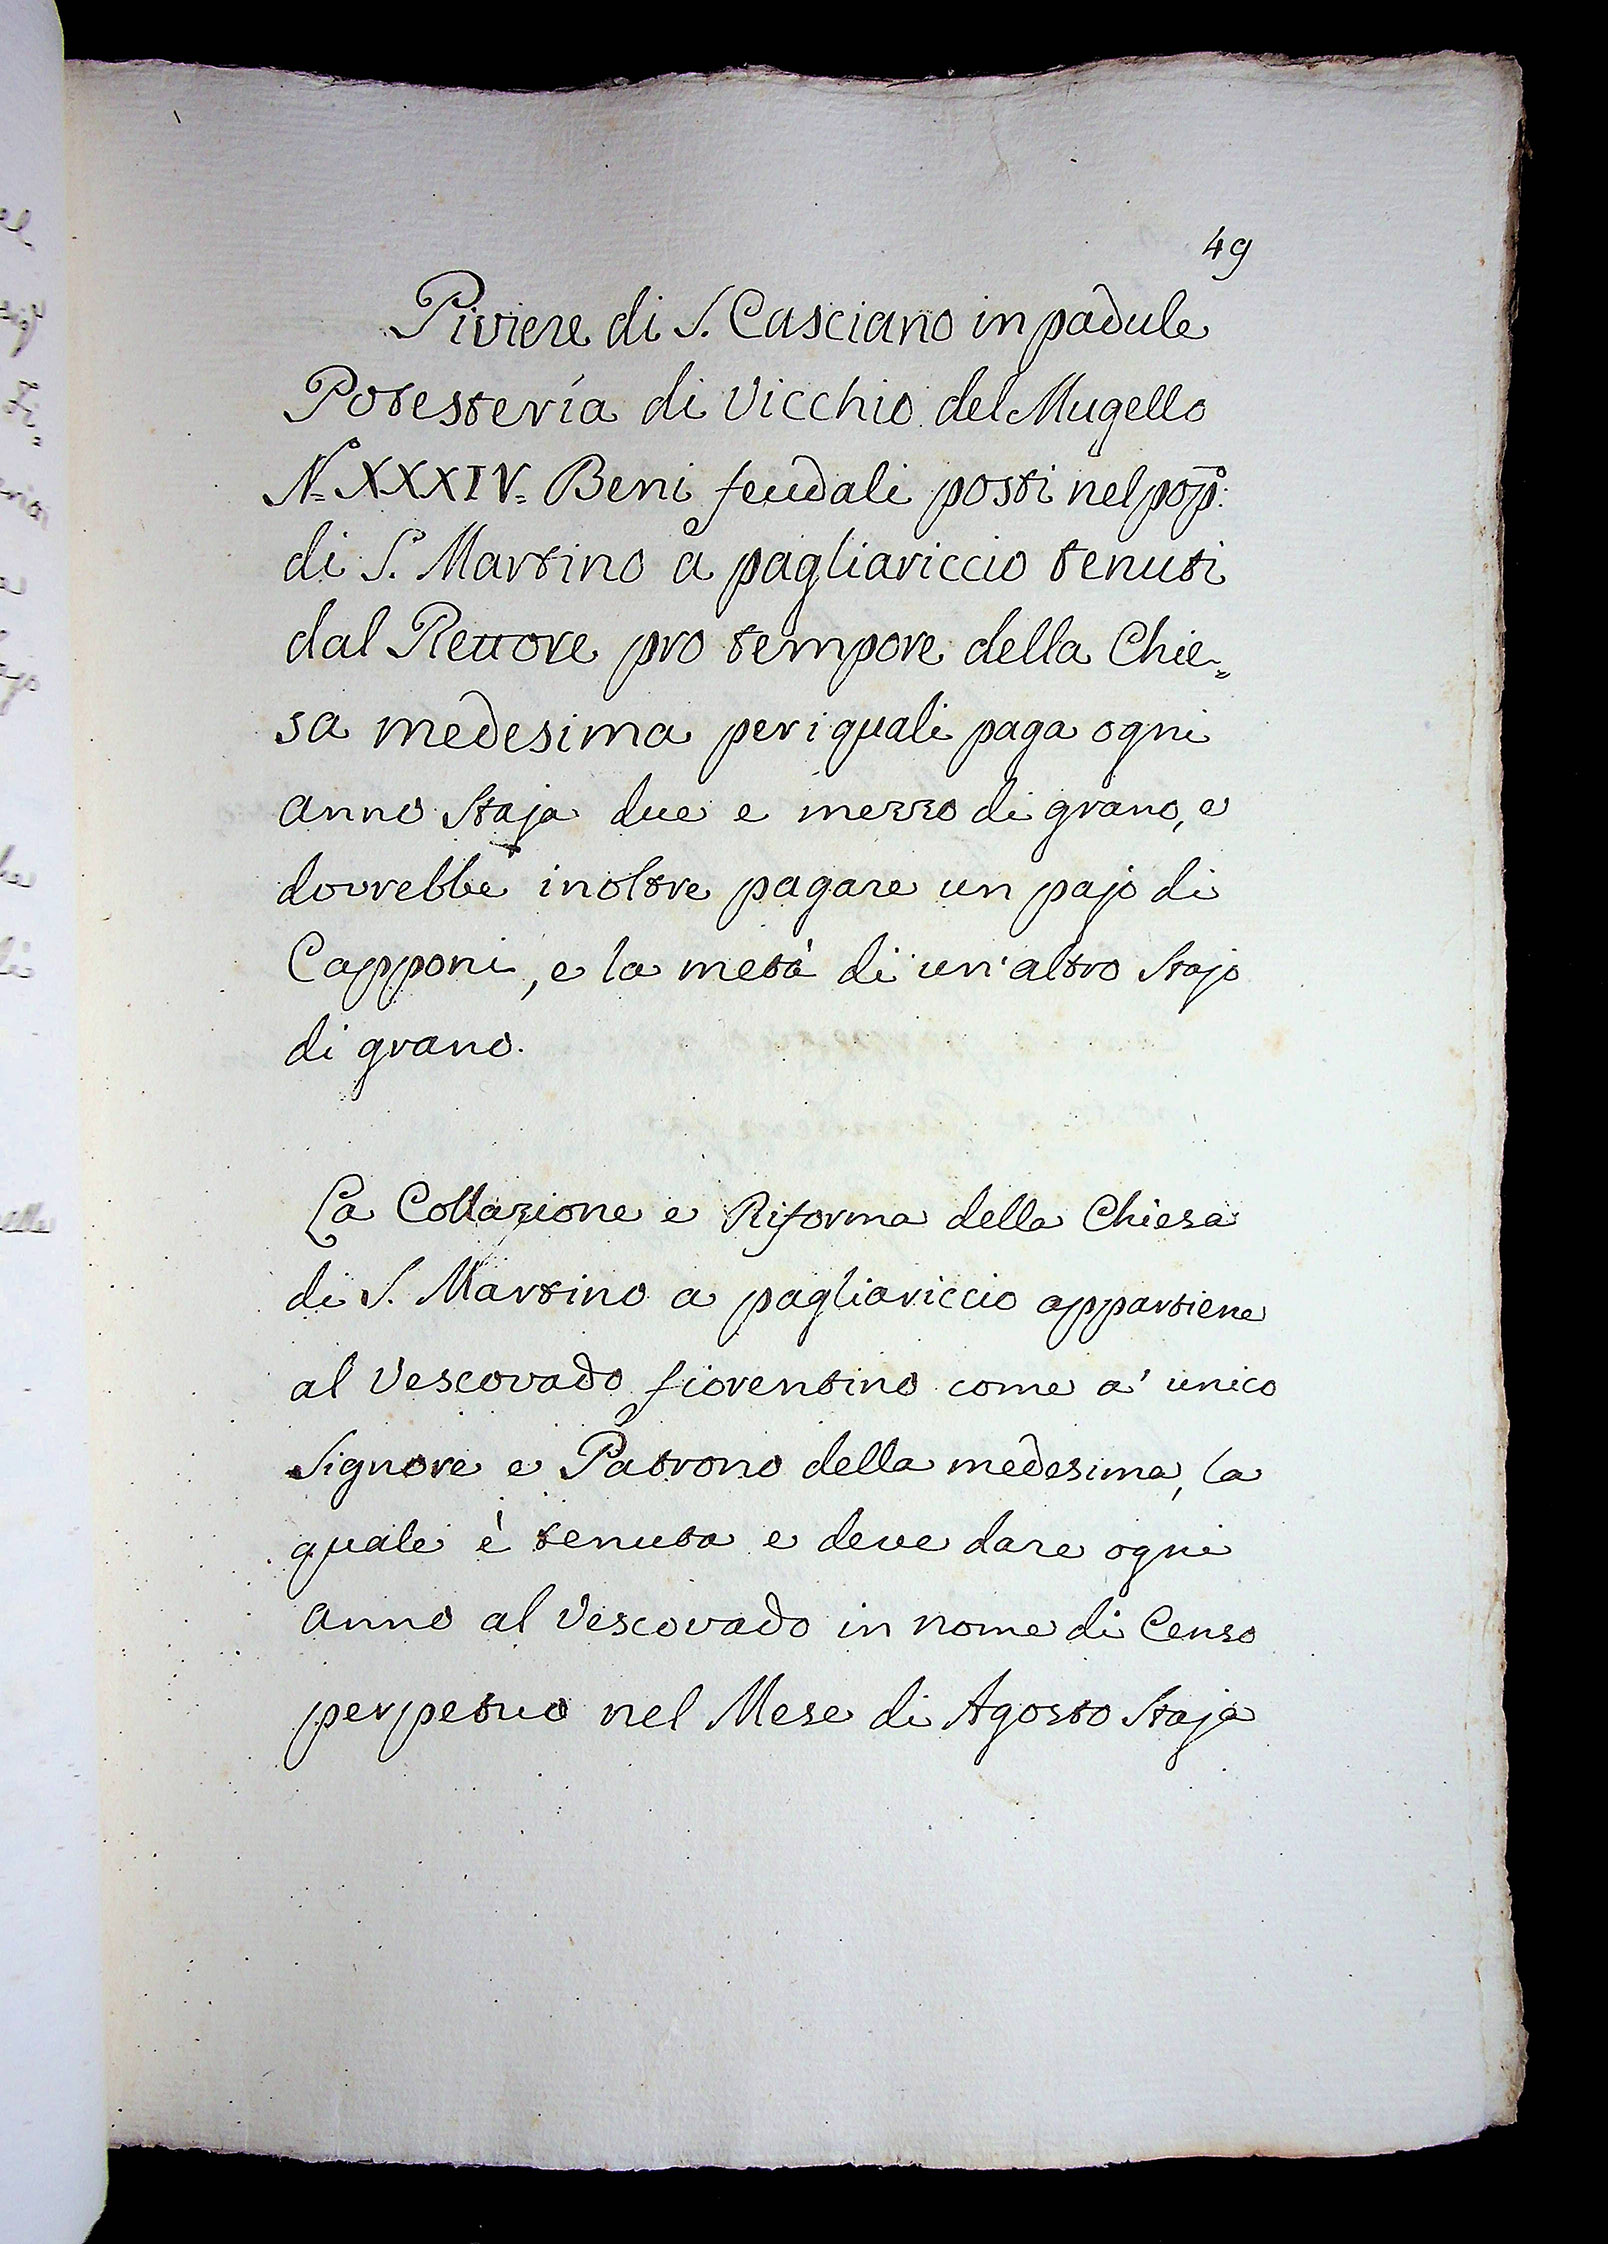 49
Piviere di S. Casciano in padule
Potestería di Vicchio del Mugello
N.º XXXIV. Beni feudali posti nel pop.º
di S. Martino a pagliariccio tenuti
dal Rettore pro tempore della Chie=
sa medesima per i quali paga ogni
anno Staja due e mezzo di grano, e
dovrebbe inoltre pagare un pajo di
Capponi, e la metà di un'altro Stajo
di grano.
La Collazione e Riforma della Chiesa
di S. Martino a pagliariccio appartiene
al Vescovado fiorentino come a' unico
Signore e Patrono della medesima, la
quale è tenuta e deve dare ogni
anno al Vescovado in nome di Censo
perpetuo nel Mese di Agosto Staja